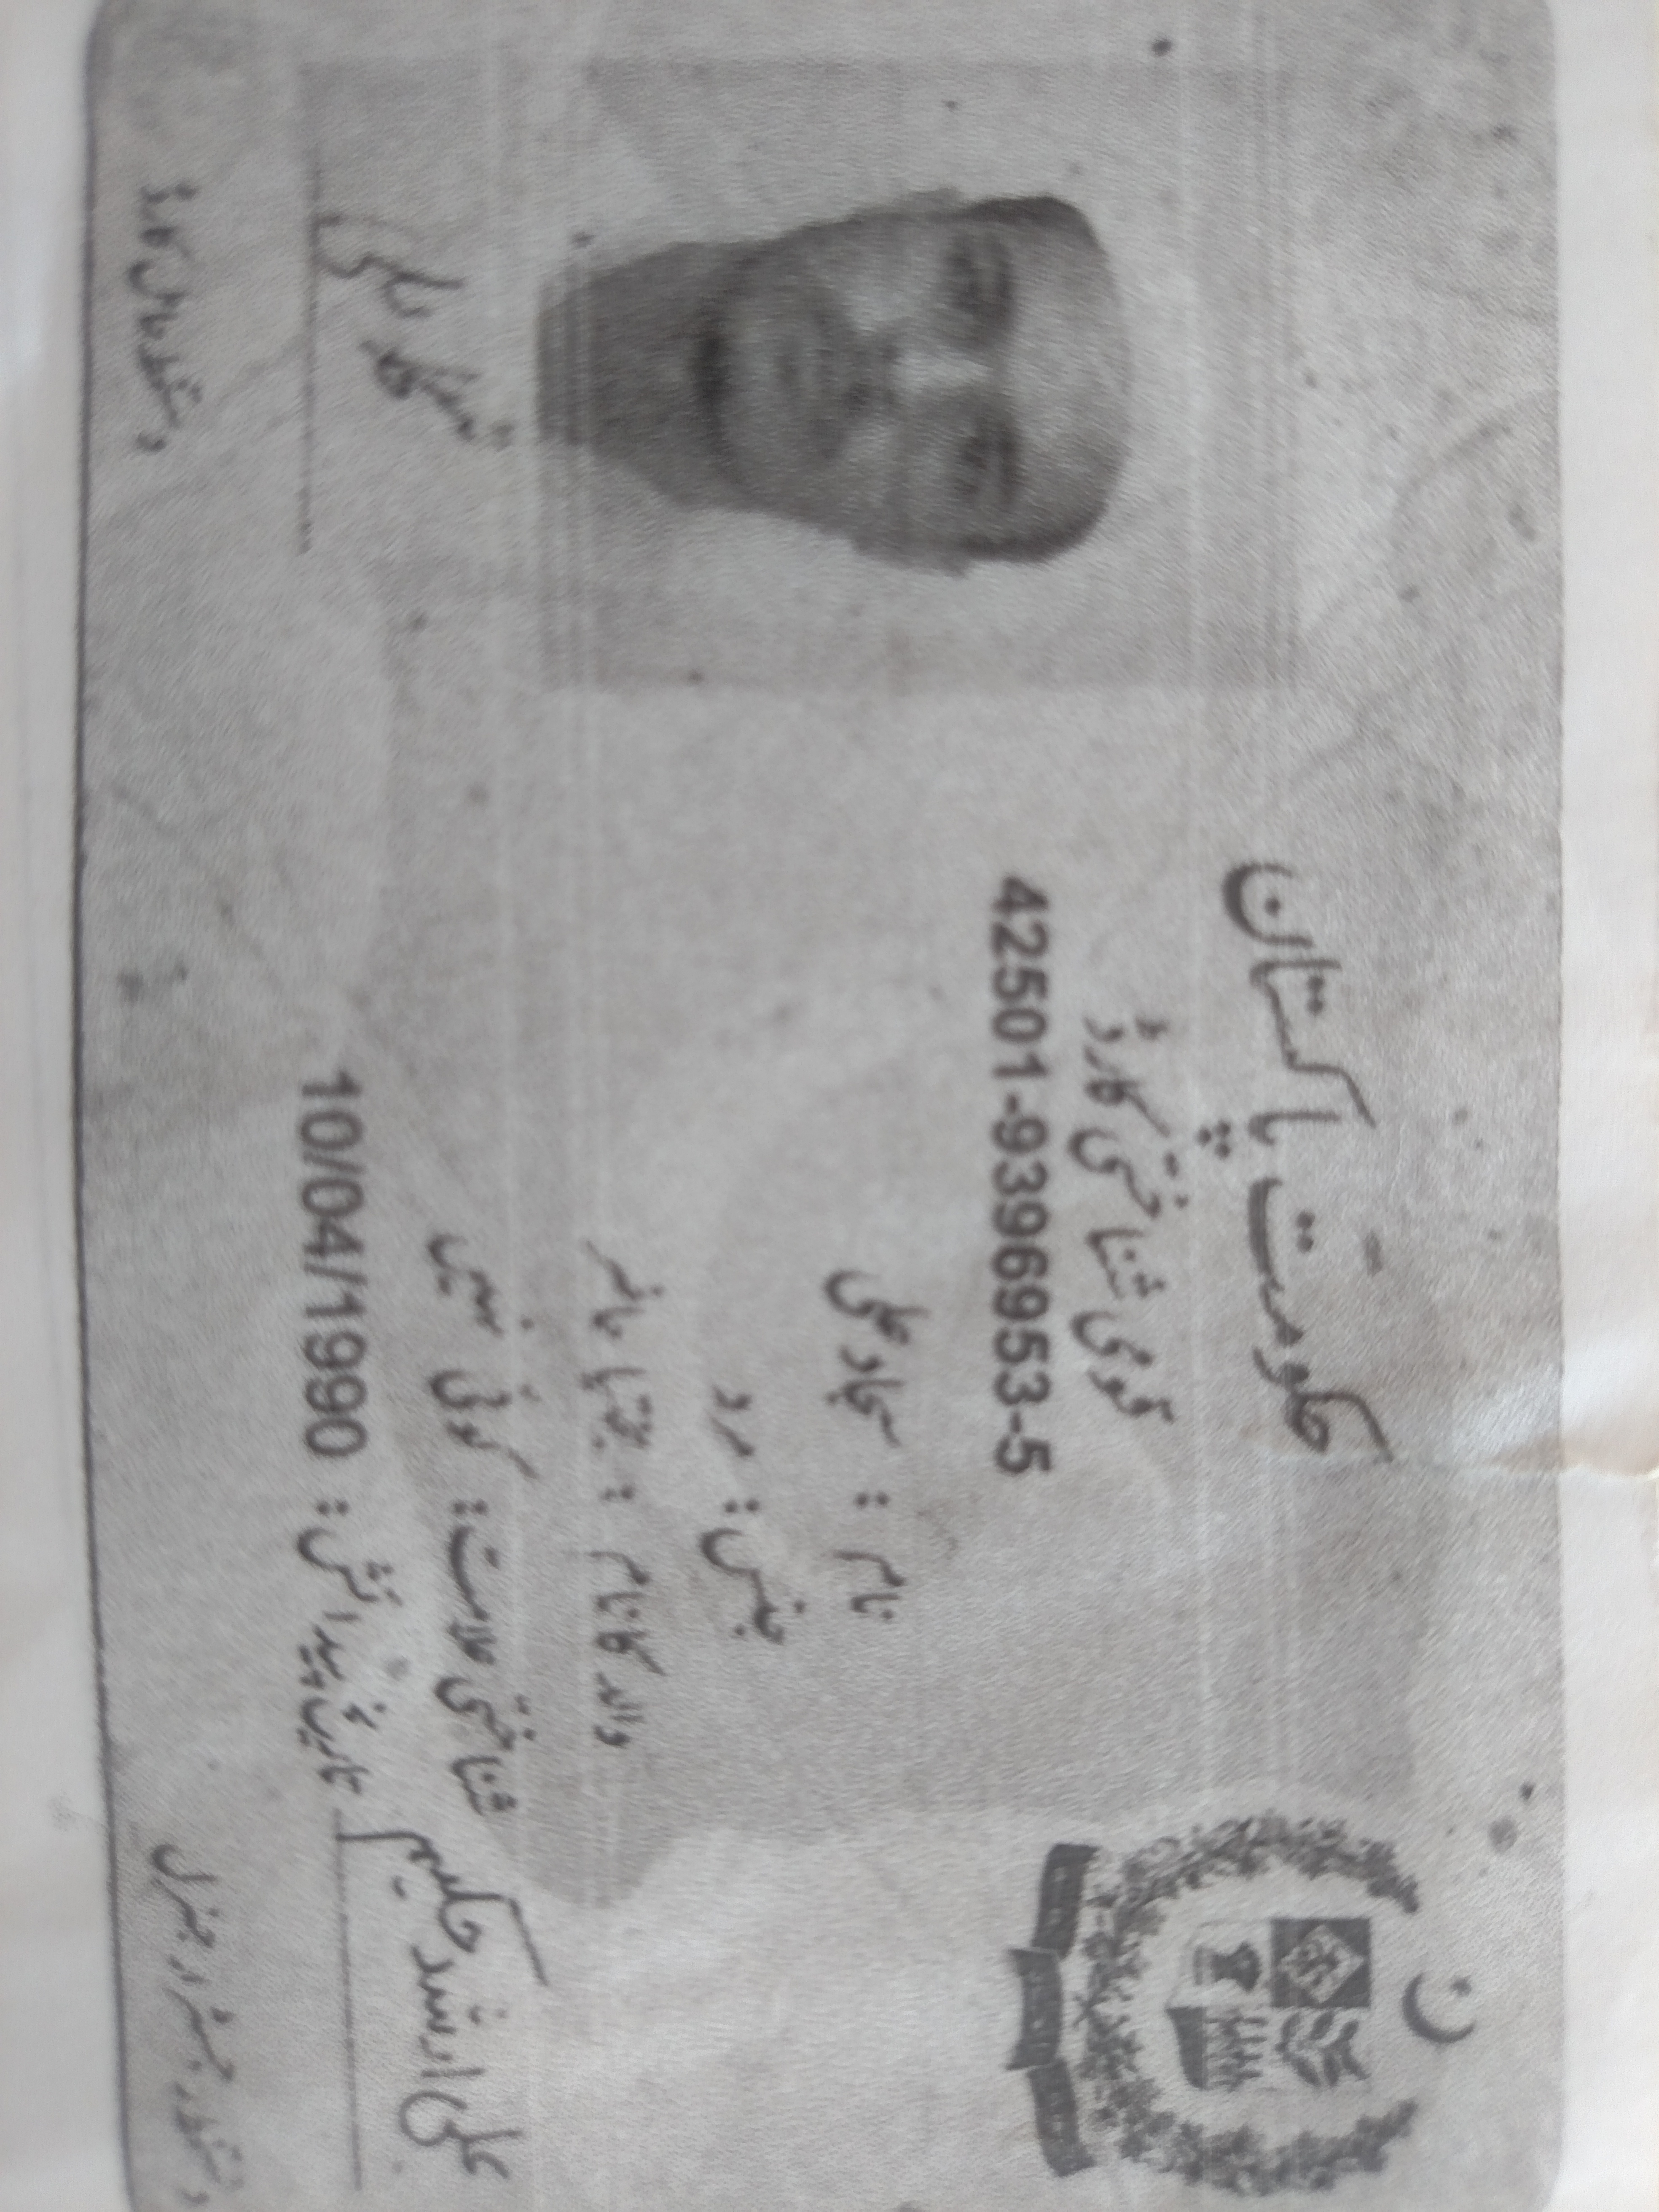 حکومتِ پاکستان
قومی شناختی کارڈ
42501-9396953-5
نام : سجاد علی
جنس : مرد
والد کا نام :
شناختی علامت : کوئی نہیں
تاریخ پیدائش : 10/04/1990
سجاد علی
علی ارشد حکیم
دستخط حامل کارڈ
دستخط رجسٹرار جنرل